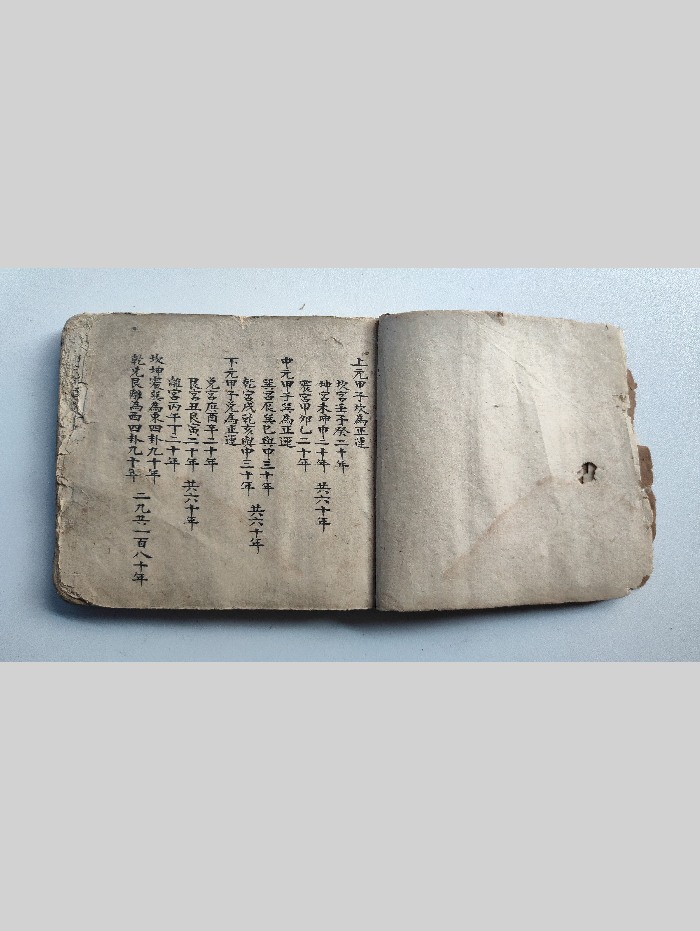 上元甲子坎為正運
坎宮壬子癸二十年
坤宮未坤申二十年 共六十年
震宮甲卯乙二十年
中元甲子巽為正運
巽宮辰巽巳與中三十年
乾宮戌乾亥與中三十年 共六十年
下元甲子兌為正運
兌宮庚酉辛二十年
艮宮丑艮寅二十年 共六十年
離宮丙午丁二十年
坎坤震巽為東四卦九十年
乾兌艮離為西四卦九十年 二九共一百八十年